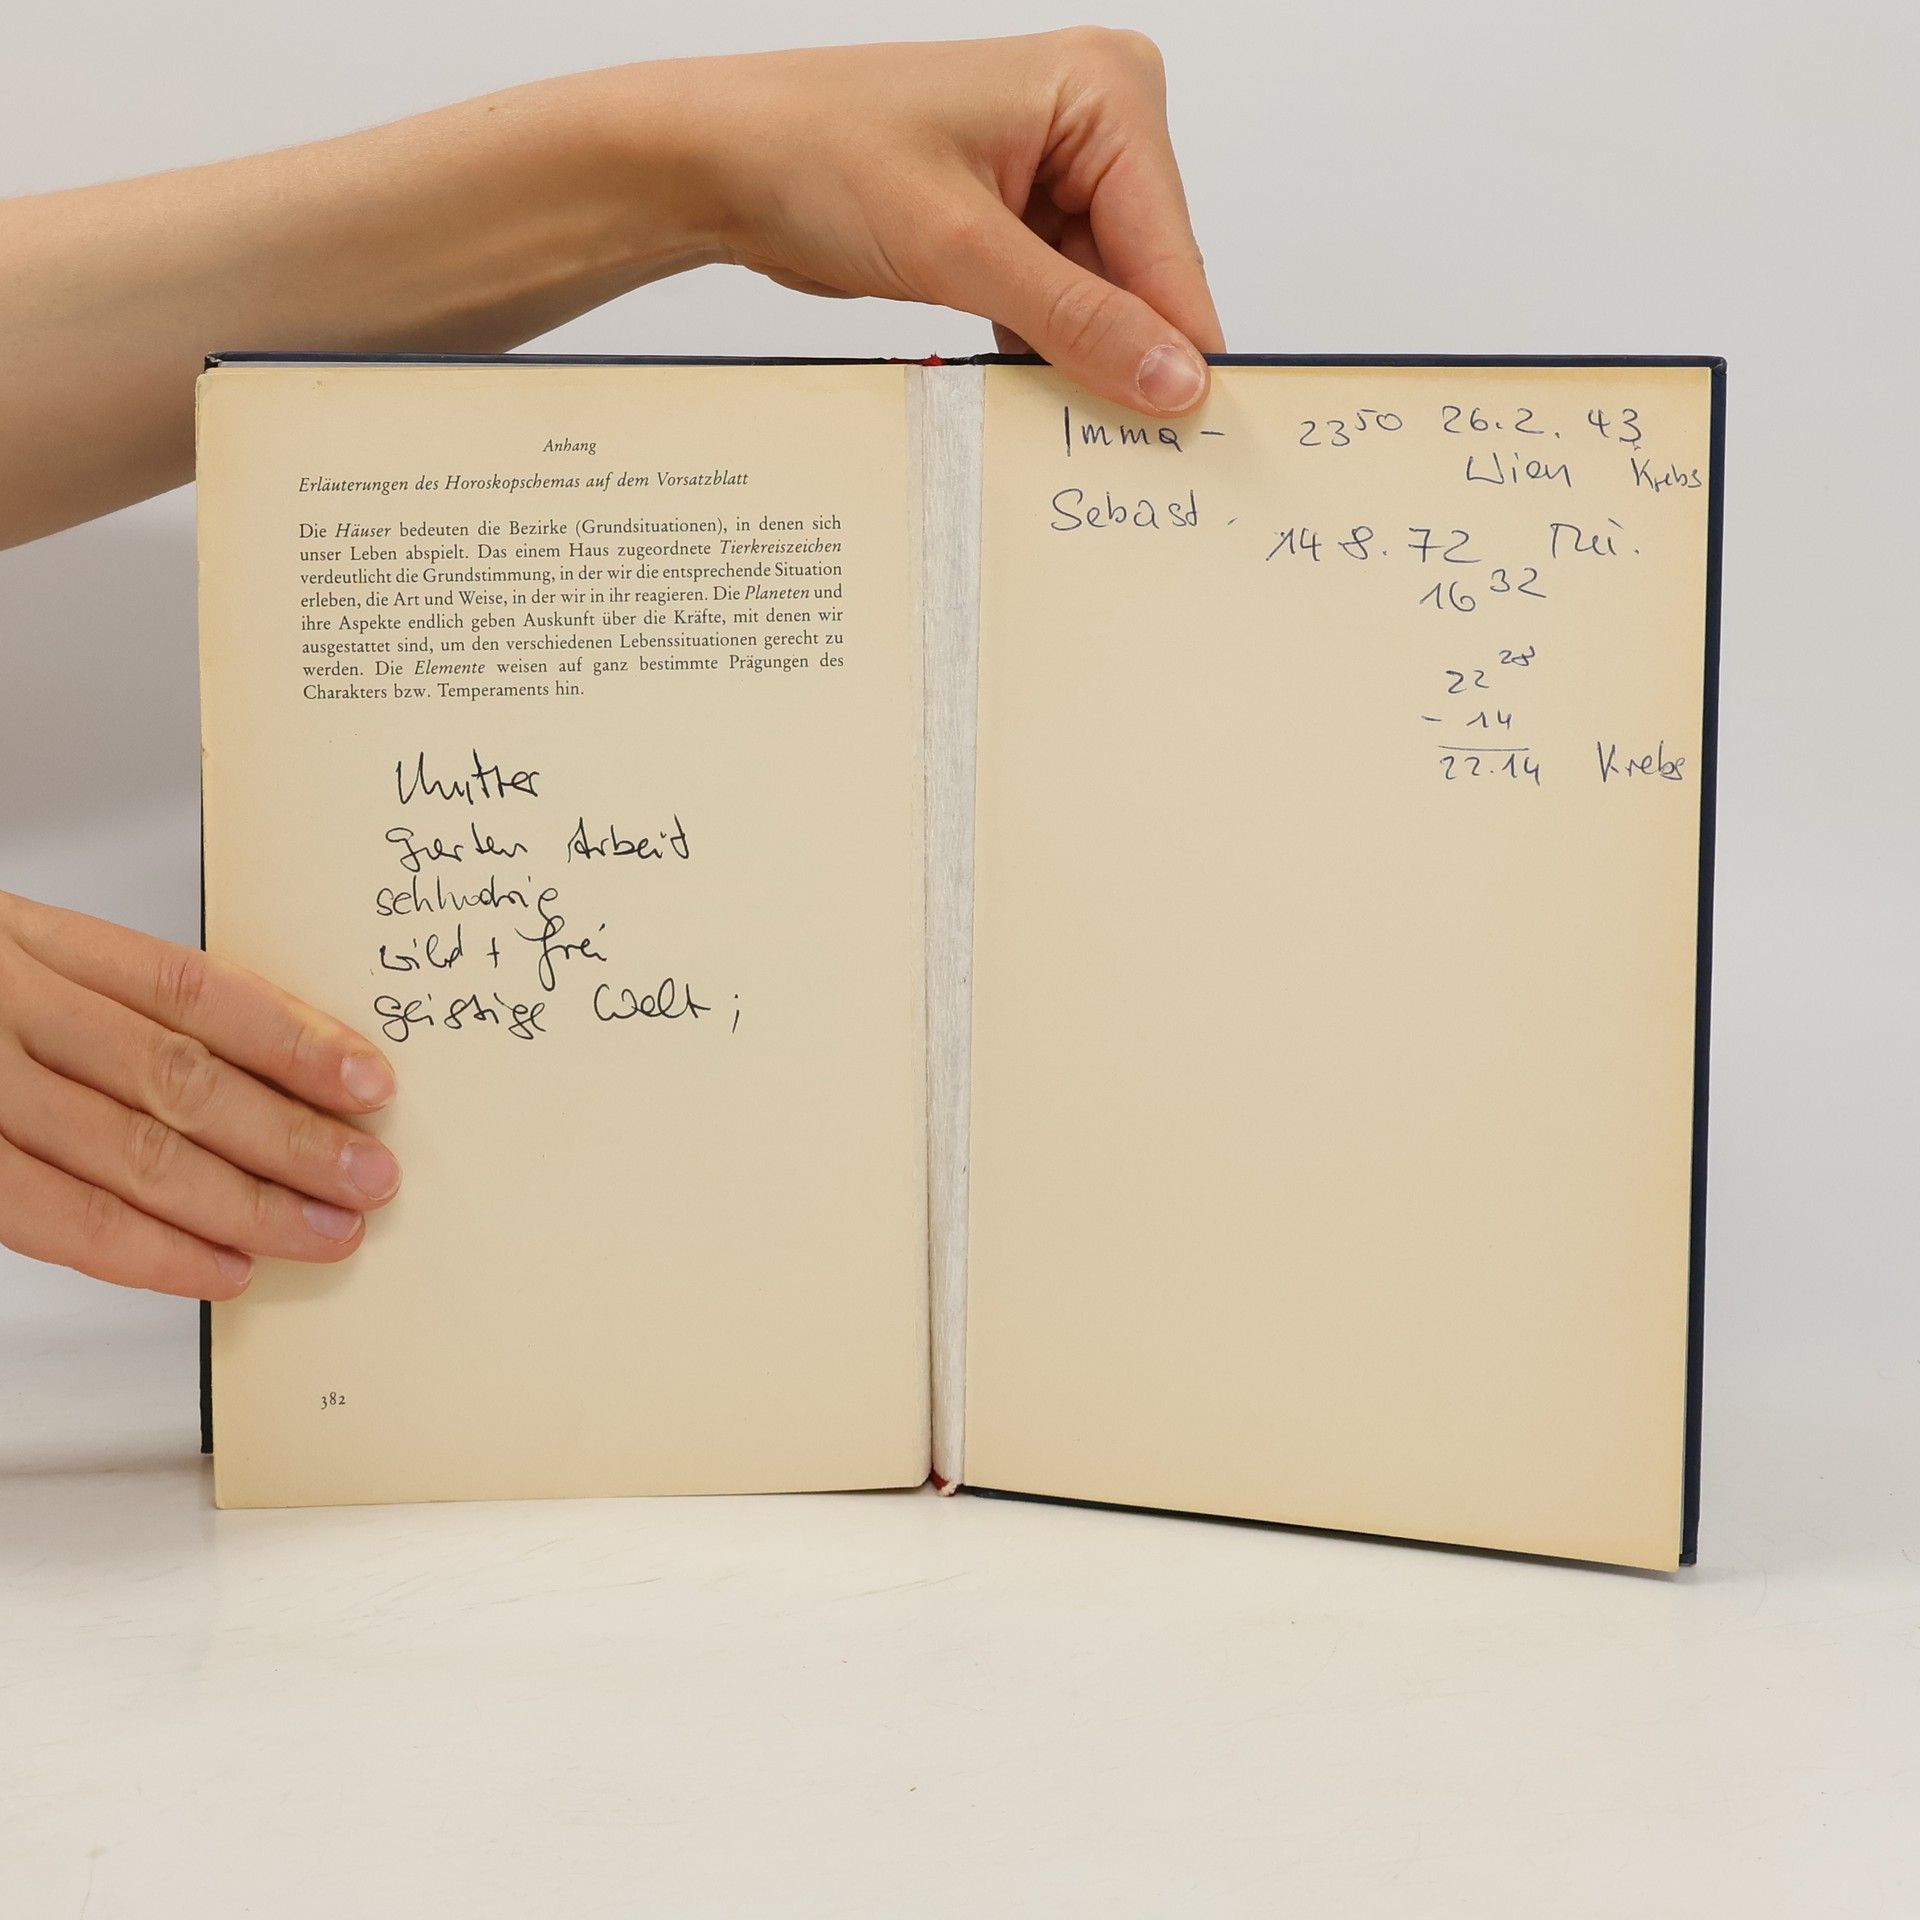 Anhang
Erläuterungen des Horoskopschemas auf dem Vorsatzblatt
Die Häuser bedeuten die Bezirke (Grundsituationen), in denen sich
unser Leben abspielt. Das einem Haus zugeordnete Tierkreiszeichen
verdeutlicht die Grundstimmung, in der wir die entsprechende Situation
erleben, die Art und Weise, in der wir in ihr reagieren. Die Planeten und
ihre Aspekte endlich geben Auskunft über die Kräfte, mit denen wir
ausgestattet sind, um den verschiedenen Lebenssituationen gerecht zu
werden. Die Elemente weisen auf ganz bestimmte Prägungen des
Charakters bzw. Temperaments hin.
Mutter
Garten Arbeit
wild + frei
geistige Welt ;
382
Imma - 23 50 26.2. 43
Wien Krebs
Sebast.
14 8. 72
16 32
22 28
- 14
22.14 Krebs